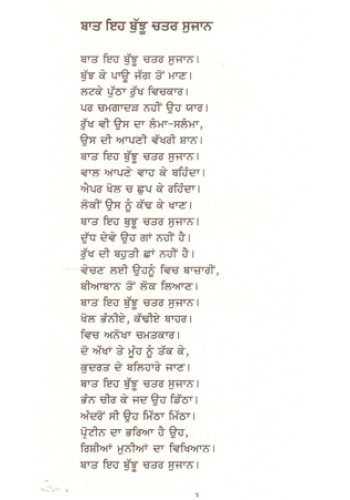 ਬਾਤ ਇਹ ਬੁੱਝੂ ਚਤਰ ਸੁਜਾਨ
ਬਾਤ ਇਹ ਬੁੱਝੂ ਚਤਰ ਸੁਜਾਨ।
ਬੁੱਝ ਕੇ ਪਾਊ ਜੱਗ ਤੋਂ ਮਾਣ।
ਲਟਕੇ ਪੁੱਠਾ ਰੁੱਖ ਵਿਚਕਾਰ।
ਪਰ ਚਮਗਾਦੜ ਨਹੀਂ ਉਹ ਯਾਰ।
ਰੁੱਖ ਵੀ ਉਸ ਦਾ ਲੰਮਾ-ਸਲੰਮਾ,
ਉਸ ਦੀ ਆਪਣੀ ਵੱਖਰੀ ਸ਼ਾਨ।
ਬਾਤ ਇਹ ਬੁੱਝੂ ਚਤਰ ਸੁਜਾਨ।
ਵਾਲ ਆਪਣੇ ਵਾਹ ਕੇ ਬਹਿੰਦਾ।
ਐਪਰ ਖੋਲ ਚ ਛੁਪ ਕੇ ਰਹਿੰਦਾ।
ਲੋਕੀਂ ਉਸ ਨੂੰ ਕੱਢ ਕੇ ਖਾਣ।
ਬਾਤ ਇਹ ਬੁਝੂ ਚਤਰ ਸੁਜਾਨ।
ਦੁੱਧ ਦੇਵੇ ਉਹ ਗਾਂ ਨਹੀਂ ਹੈ।
ਰੁੱਖ ਦੀ ਬਹੁਤੀ ਛਾਂ ਨਹੀਂ ਹੈ।
ਵੇਚਣ ਲਈ ਉਹਨੂੰ ਵਿਚ ਬਾਜ਼ਾਰੀਂ,
ਬੀਆਬਾਨ ਤੋਂ ਲੋਕ ਲਿਆਣ।
ਬਾਤ ਇਹ ਬੁੱਝੂ ਚਤਰ ਸੁਜਾਨ।
ਖੋਲ ਭੰਨੀਏ, ਕੱਢੀਏ ਬਾਹਰ।
ਵਿਚ ਅਨੋਖਾ ਚਮਤਕਾਰ।
ਦੋ ਅੱਖਾਂ ਤੇ ਮੂੰਹ ਨੂੰ ਤੱਕ ਕੇ,
ਕੁਦਰਤ ਦੇ ਬਲਿਹਾਰੇ ਜਾਣ।
ਬਾਤ ਇਹ ਬੁੱਝੂ ਚਤਰ ਸੁਜਾਨ।
ਭੰਨ ਚੀਰ ਕੇ ਜਦ ਉਹ ਡਿੱਠਾ।
ਅੰਦਰੋਂ ਸੀ ਉਹ ਮਿੱਠਾ ਮਿੱਠਾ।
ਪ੍ਰੋਟੀਨ ਦਾ ਭਰਿਆ ਹੈ ਉਹ,
ਰਿਸ਼ੀਆਂ ਮੁਨੀਆਂ ਦਾ ਵਿਖਿਆਨ।
ਬਾਤ ਇਹ ਬੁੱਝੂ ਚਤਰ ਸੁਜਾਨ।